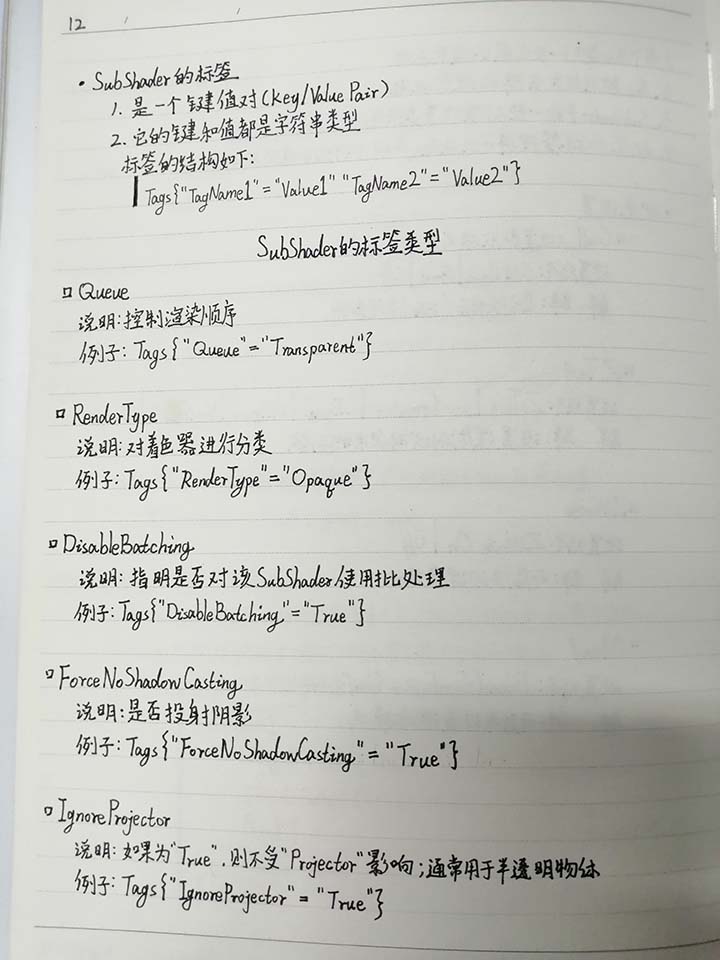 12
• SubShader的标签
1. 是一个键值对(Key/Value Pair)
2. 它的键和值都是字符串类型
标签的结构如下:
Tags{"TagName1"="Value1" "TagName2"="Value2"}
SubShader的标签类型
Queue
说明:控制渲染顺序
例子: Tags{"Queue"="Transparent"}
RenderType
说明:对着色器进行分类
例子: Tags{"RenderType"="Opaque"}
DisableBatching
说明: 指明是否对该SubShader使用批处理
例子: Tags{"DisableBatching"="True"}
ForceNoShadowCasting
说明:是否投射阴影
例子: Tags{"ForceNoShadowCasting"="True"}
IgnoreProjector
说明: 如果为"True",则不受"Projector"影响;通常用于半透明物体
例子: Tags{"IgnoreProjector"="True"}